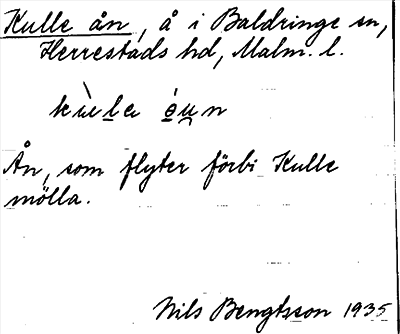 Kulle ån, å i Baldringe sn,
Herrestads hd, Malm. l.
Ån, som flyter förbi Kulle
mölla.
Nils Bengtsson 1935